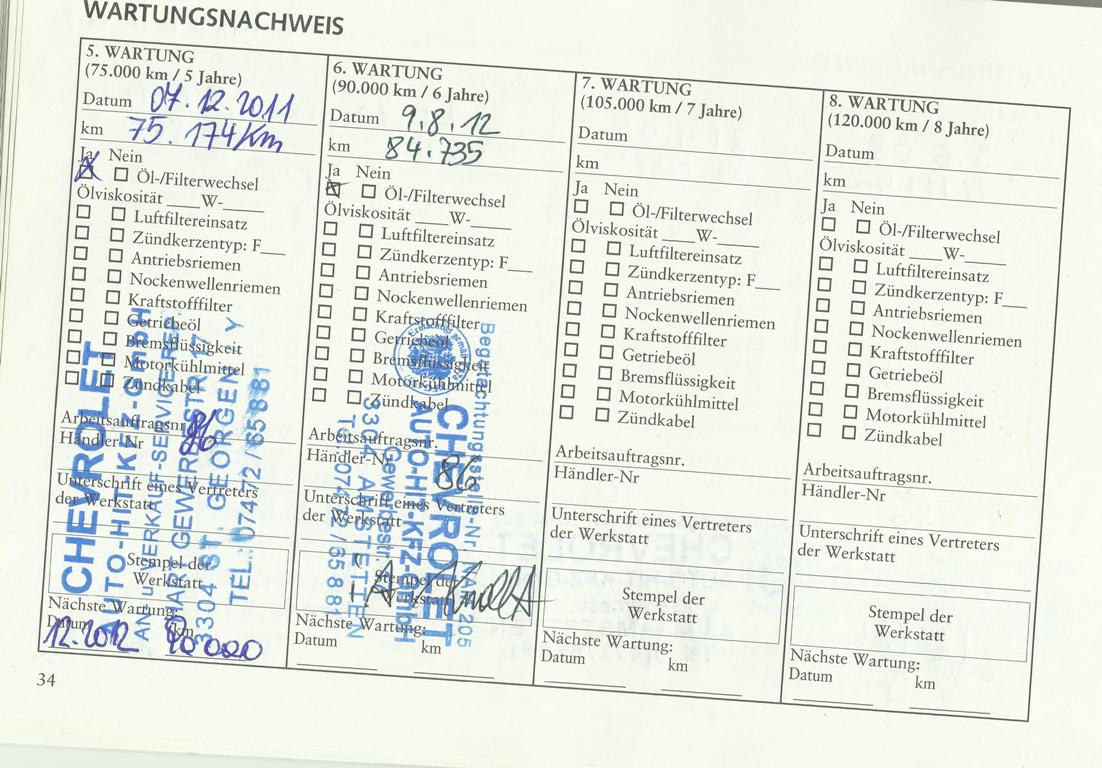 WARTUNGSNACHWEIS
5. WARTUNG
(75.000 km / 5 Jahre)
Datum 07.12.2011
km 75.174 Km
Ja Nein
Öl-/Filterwechsel
Ölviskosität ____W-_____
Luftfiltereinsatz
Zündkerzentyp: F___
Antriebsriemen
Nockenwellenriemen
Kraftstofffilter
Getriebeöl
Bremsflüssigkeit
Motorkühlmittel
Zündkabel
Arbeitsauftragsnr.
Händler-Nr 86
Unterschrift eines Vertreters
der Werkstatt
Stempel der
Werkstatt
CHEVROLET
AUTO-HIT-KFZ-GmbH
AN u. VERKAUF-SERVICE-REP.
GEWERBESTR. 17
3304 ST. GEORGEN Y
TEL.: 07472 / 65 881
Nächste Wartung:
Datum km
12.2012 90000
6. WARTUNG
(90.000 km / 6 Jahre)
Datum 9.8.12
km 84.735
Ja Nein
Öl-/Filterwechsel
Ölviskosität ____W-_____
Luftfiltereinsatz
Zündkerzentyp: F___
Antriebsriemen
Nockenwellenriemen
Kraftstofffilter
Getriebeöl
Bremsflüssigkeit
Motorkühlmittel
Zündkabel
Arbeitsauftragsnr.
Händler-Nr 86
Unterschrift eines Vertreters
der Werkstatt
Stempel der
Werkstatt
Begutachtungsstelle-Nr. NA 205
CHEVROLET
AUTO-HIT-KFZ-GmbH
Gewerbestr. 17
3304 AMSTETTEN
Tel. 07472 / 65 881
Nächste Wartung:
Datum km
7. WARTUNG
(105.000 km / 7 Jahre)
Datum
km
Ja Nein
Öl-/Filterwechsel
Ölviskosität ____W-_____
Luftfiltereinsatz
Zündkerzentyp: F___
Antriebsriemen
Nockenwellenriemen
Kraftstofffilter
Getriebeöl
Bremsflüssigkeit
Motorkühlmittel
Zündkabel
Arbeitsauftragsnr.
Händler-Nr
Unterschrift eines Vertreters
der Werkstatt
Stempel der
Werkstatt
Nächste Wartung:
Datum km
8. WARTUNG
(120.000 km / 8 Jahre)
Datum
km
Ja Nein
Öl-/Filterwechsel
Ölviskosität ____W-_____
Luftfiltereinsatz
Zündkerzentyp: F___
Antriebsriemen
Nockenwellenriemen
Kraftstofffilter
Getriebeöl
Bremsflüssigkeit
Motorkühlmittel
Zündkabel
Arbeitsauftragsnr.
Händler-Nr
Unterschrift eines Vertreters
der Werkstatt
Stempel der
Werkstatt
Nächste Wartung:
Datum km
34